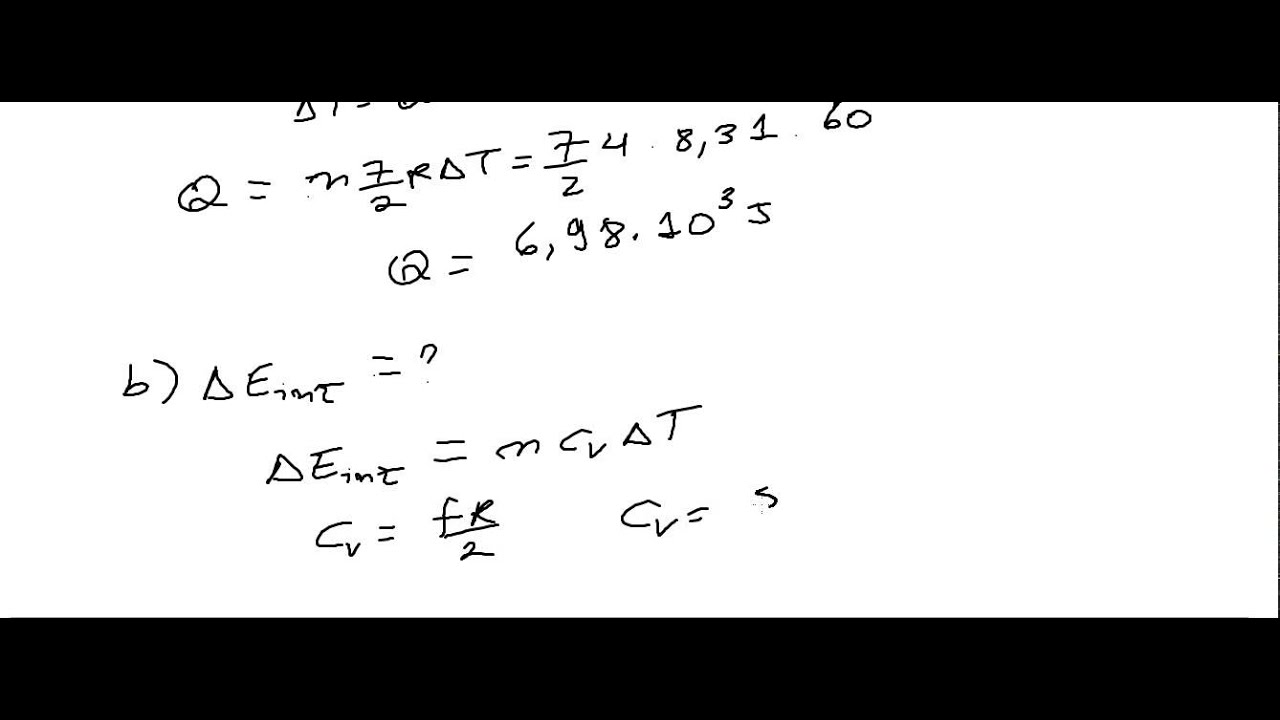 ΔT =
Q = n 7/2 R ΔT = 7/2 4 . 8,31 . 60
Q = 6,98 . 10³ J
b) ΔEint = ?
ΔEint = n Cv ΔT
Cv = fR/2 Cv = 5